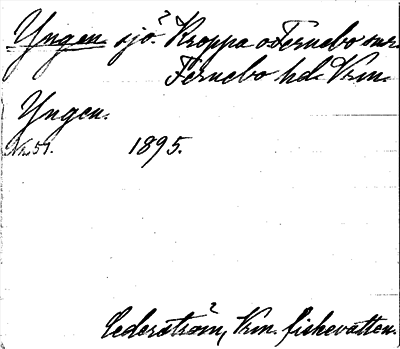 Yngen sjö? Kroppa o Fernebo snr.
Fernebo hd. Vrm.
Yngen.
N:o 51. 1895.
Cederström, Vrm. fiskevatten.